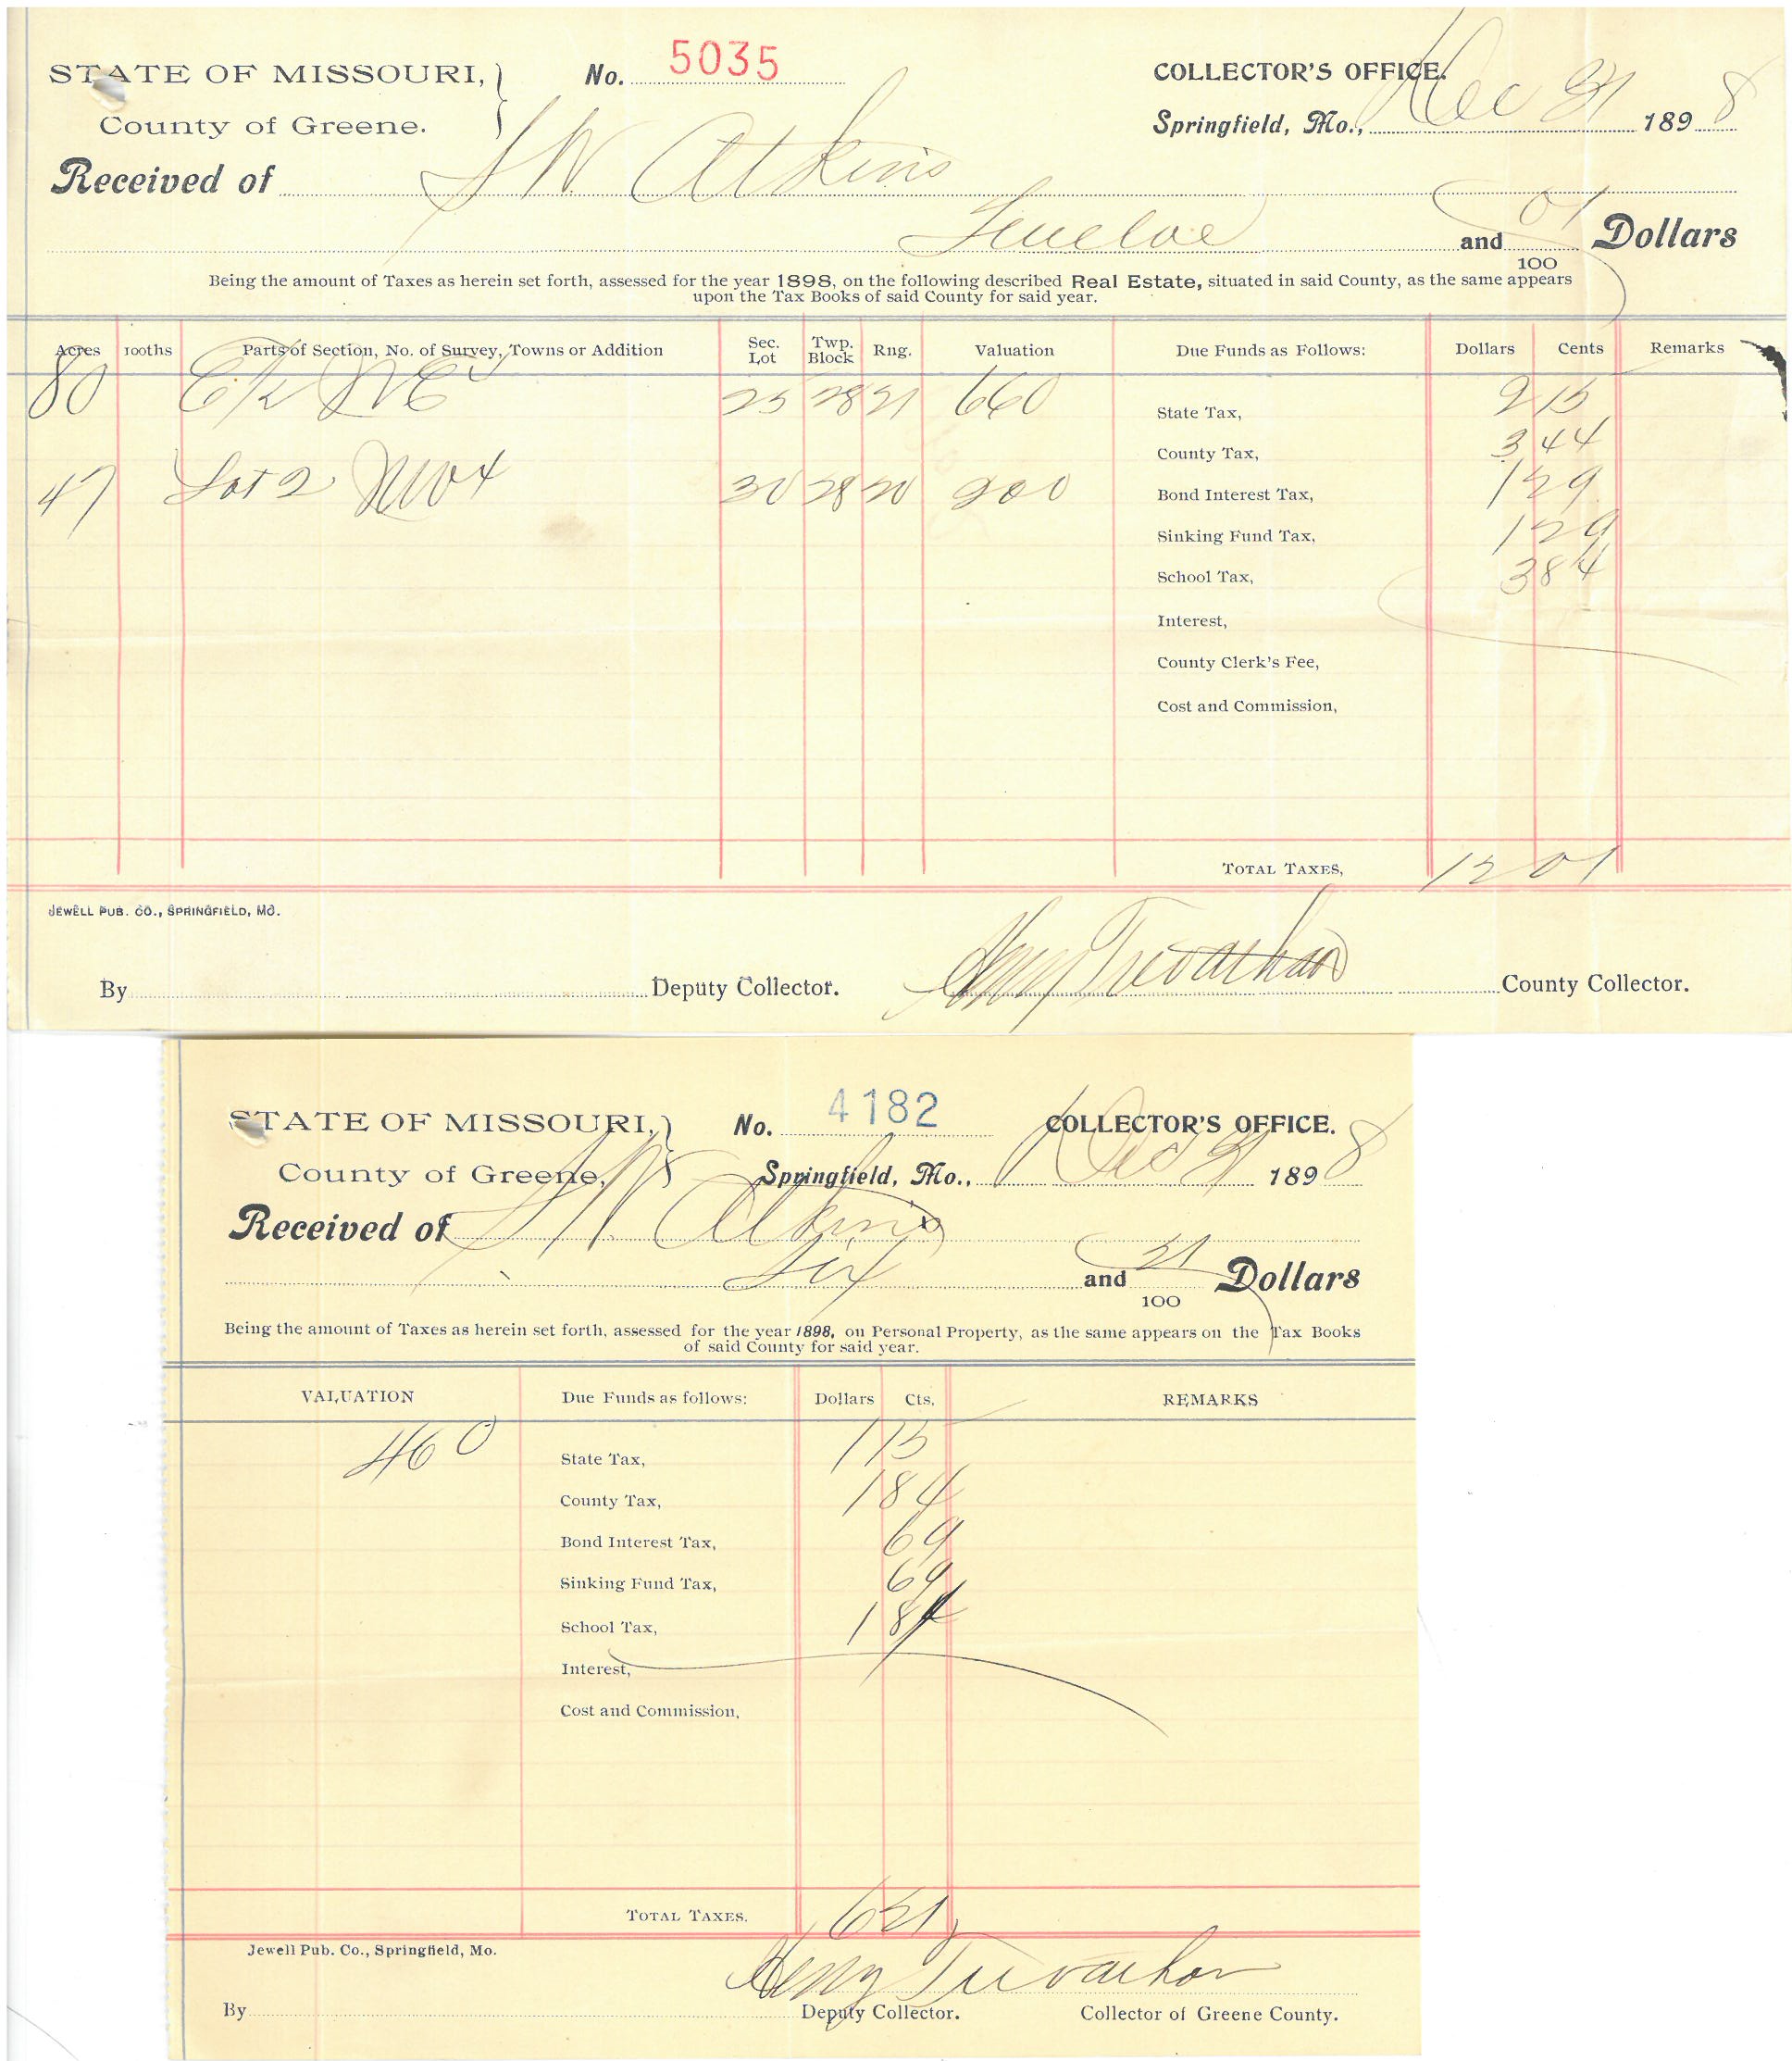 STATE OF MISSOURI,
County of Greene.
No. 5035
COLLECTOR'S OFFICE.
Springfield, Mo., Dec 31 1898
Received of S W Atkins
Twelve and 01/100 Dollars
Being the amount of Taxes as herein set forth, assessed for the year 1898, on the following described Real Estate, situated in said County, as the same appears
upon the Tax Books of said County for said year.
Acres 100ths Parts of Section, No. of Survey, Towns or Addition Sec. Lot Twp. Block Rng. Valuation Due Funds as Follows: Dollars Cents Remarks
80 E/2 NE 25 28 21 660 State Tax, 2 15
County Tax, 3 44
47 Lot 2 NW4 30 28 20 200 Bond Interest Tax, 1 29
Sinking Fund Tax, 1 29
School Tax, 3 84
Interest,
County Clerk's Fee,
Cost and Commission,
TOTAL TAXES, 12 01
JEWELL PUB. CO., SPRINGFIELD, MO.
By Deputy Collector. Henry Trevathan County Collector.
STATE OF MISSOURI,
County of Greene,
No. 4182
COLLECTOR'S OFFICE.
Springfield, Mo., Dec 31 1898
Received of S W Atkins
Six and 21/100 Dollars
Being the amount of Taxes as herein set forth, assessed for the year 1898, on Personal Property, as the same appears on the Tax Books
of said County for said year.
VALUATION Due Funds as follows: Dollars Cts. REMARKS
460 State Tax, 1 15
County Tax, 1 84
Bond Interest Tax, 69
Sinking Fund Tax, 69
School Tax, 1 84
Interest,
Cost and Commission,
TOTAL TAXES. 6 21
Jewell Pub. Co., Springfield, Mo.
Henry Trevathan
By Deputy Collector. Collector of Greene County.